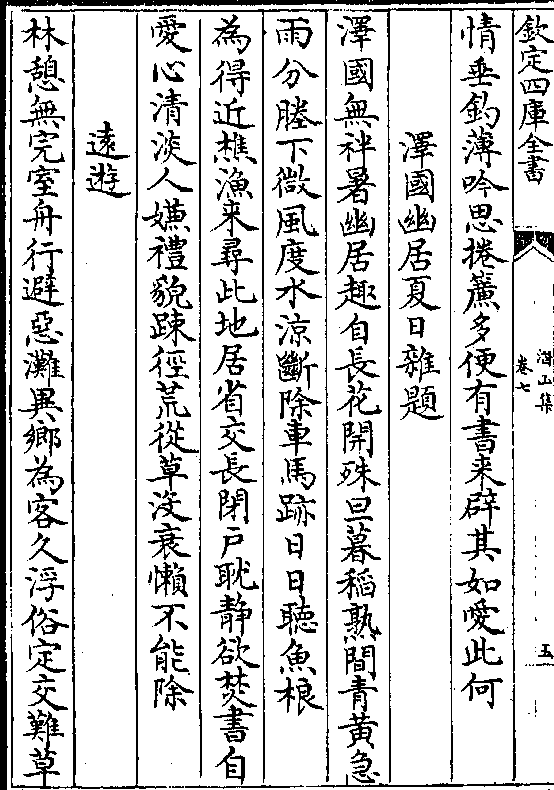 欽定四庫全書
潛山集
卷七
五
情垂釣薄吟思捲簾多便有書来辟其如愛此何
澤國幽居夏日雜題
澤國無袢暑幽居趣自長花開殊旦暮稻熟間青黃急
雨分塍下微風度水涼斷除車馬跡日日聽魚桹
為得近樵漁来尋此地居省交長閉戸耽静欲焚書自
愛心清淡人嫌禮貌踈徑荒從草没衰懶不能除
逺遊
林憩無完室舟行避惡灘異鄉為客久浮俗定交難草